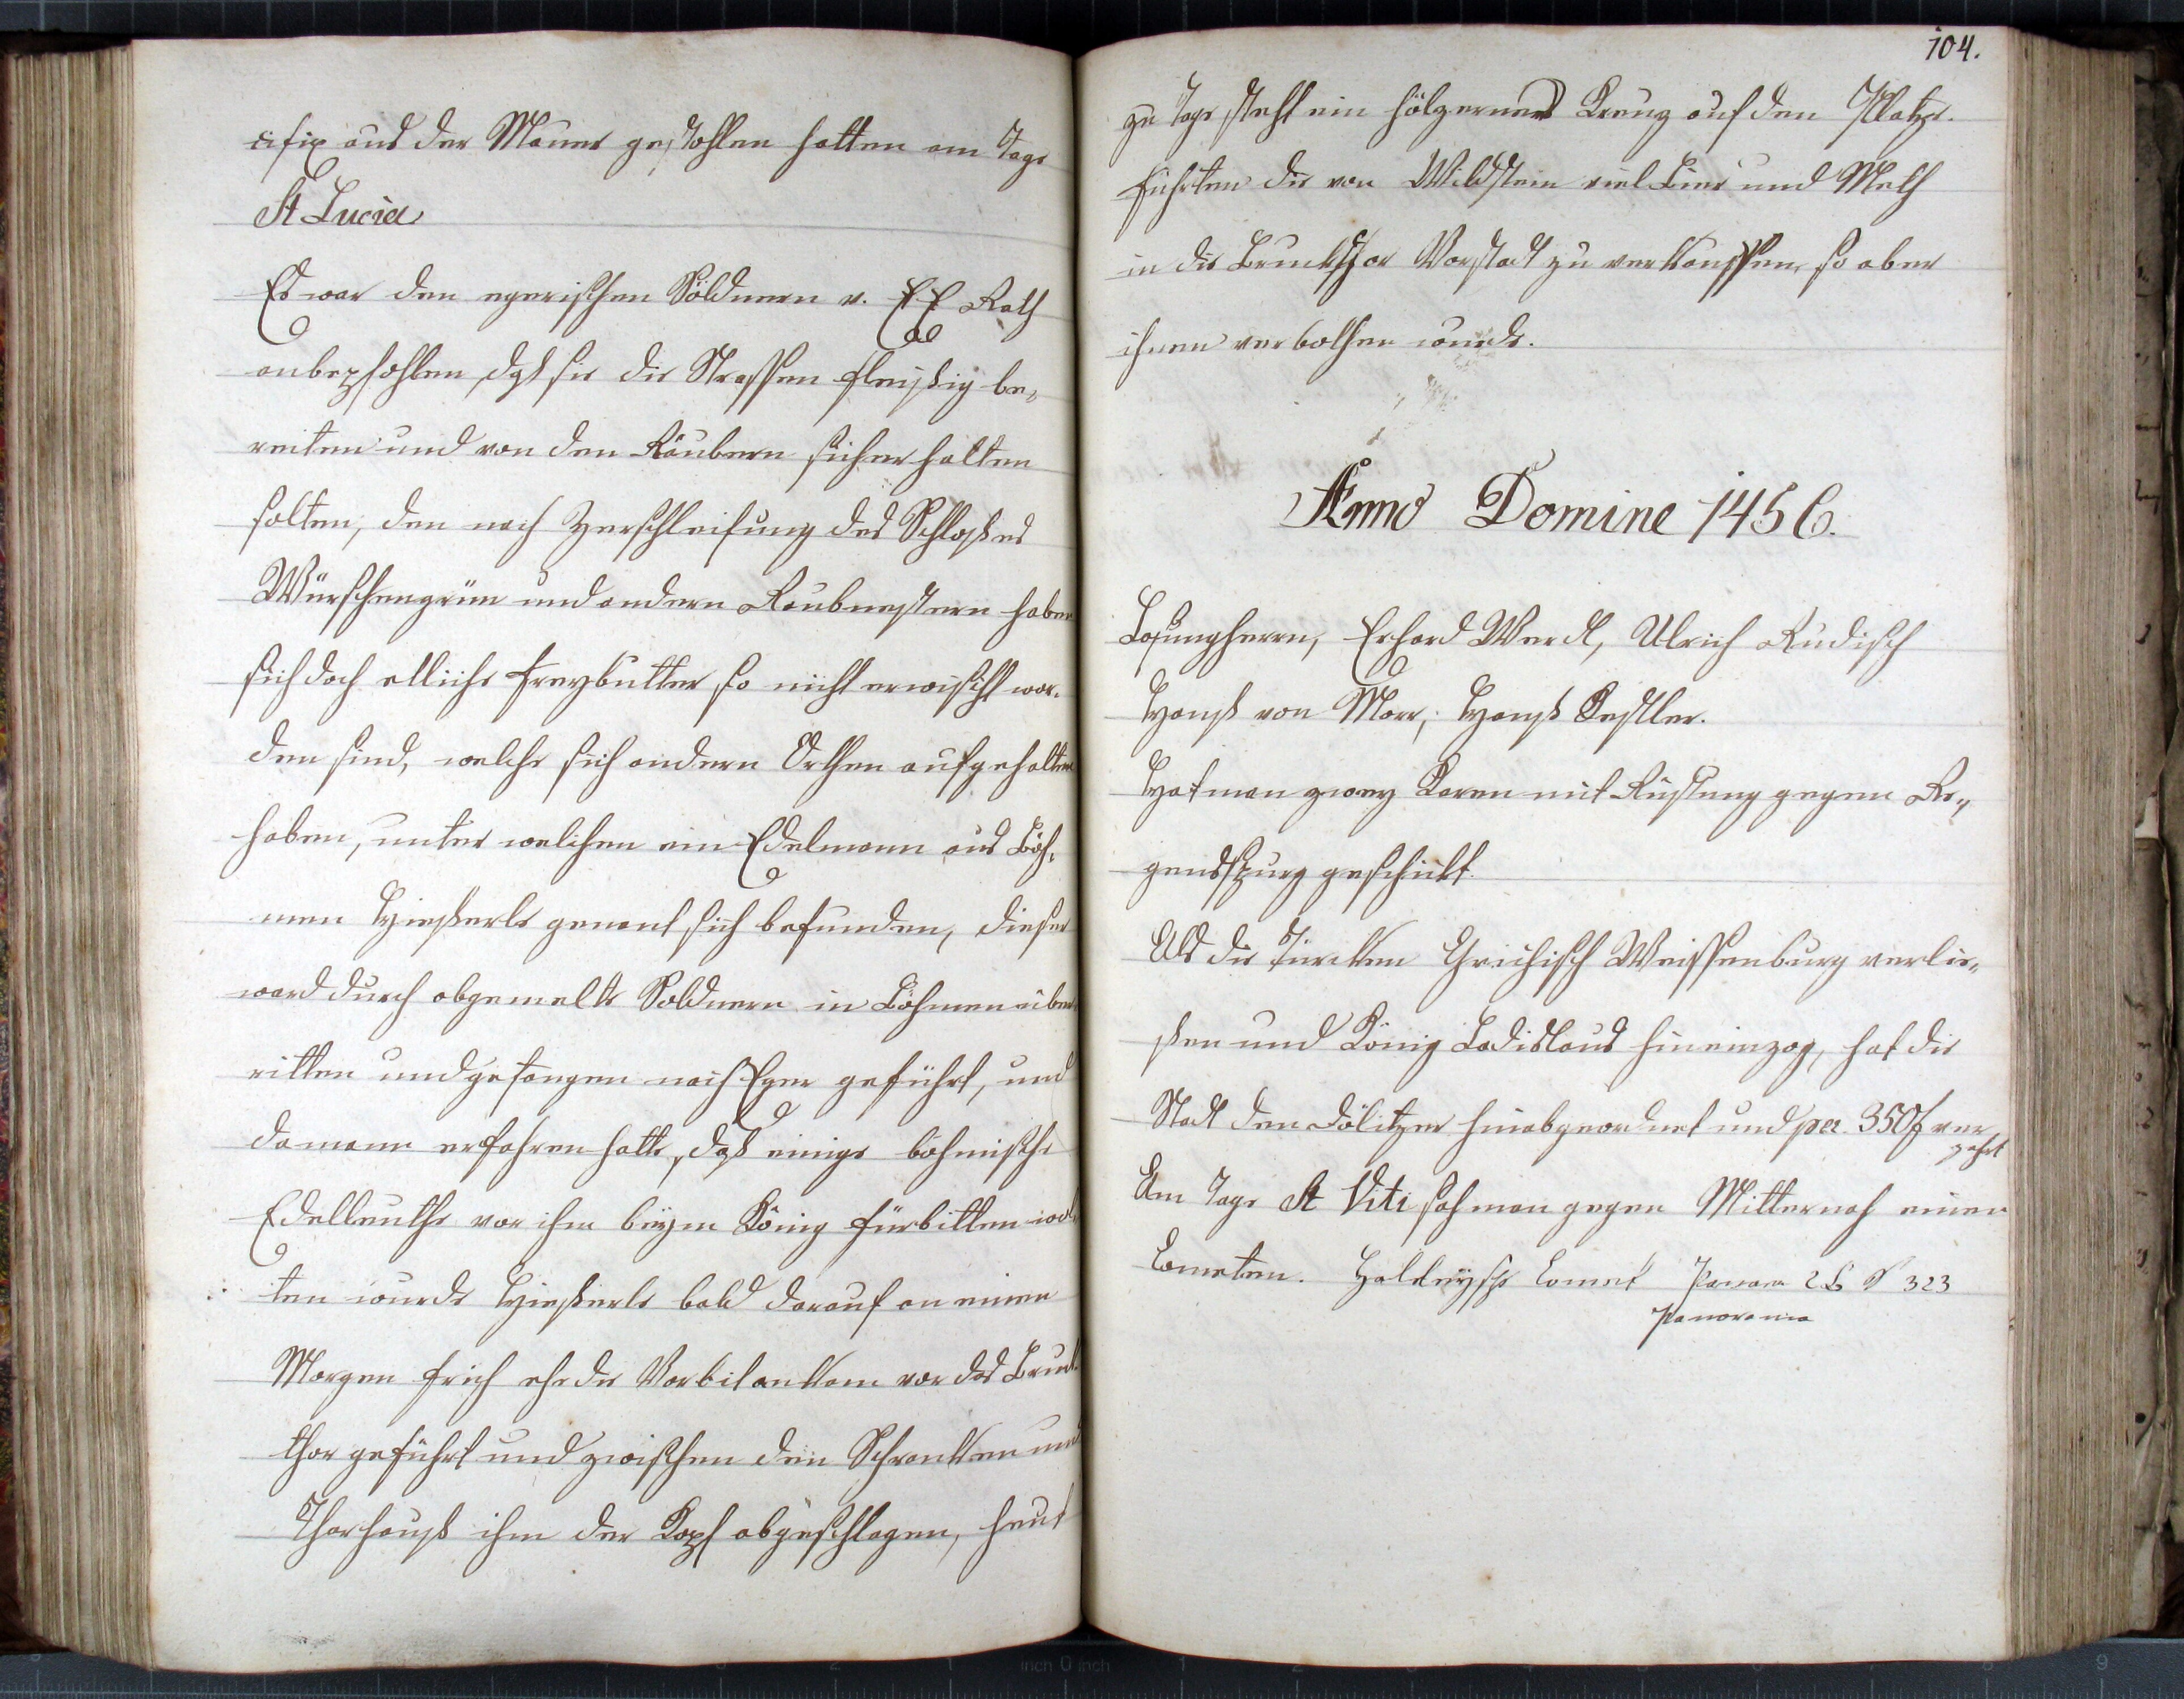 cifix aus der Mauer gestohlen hatten am Tage
St Lucia
Es war den egerischen Söldnern v. EE Rath
anbepfohlen, daß sie die Strassen fleißig be,
reiten und von den Räubern sicher halten
solten, den nach Zerschleifung des Schloßes
Würschengrün und andern Raubnestern haben
sich doch etliche Freybutter so nicht erwischt wor,
den sind, welche sich andern Orthen aufgehalten
haben, unter welchen ein Edelmann aus Böh,
men Hießerle genant sich befunden, dieser
ward durch obgemelte Soldnern in Böhmen über
ritten und gefangen nach Eger geführt, und
da mann erfahren hatte, daß einige böhmische
Edelleuthe vor ihm beym König fürbitten wol
ten wurde Hießerle bald darauf an einen
Morgen früh ehe die Vorbit ankam vor das Bruck
thor geführt und zwischen den Schranken und
Thorhauß ihm der Kopf abgeschlagen, heut
104.
zu Tage steht ein hölzernes Kreuz auf den Platze.
führten die von Wildstein viel Bier und Meth
in die Bruckthor Vorstadt zu verkauffen, so aber
ihnen verbothen wurde.
Anno Domine 1456.
Losungherrn, Erhard Werdl, Ulrich Rudisch
Hanß von Mose, Hanß Kestler.
Hat man zwey Karen mit Rüstung gegen Re,,
gendspurg geschickt.
Als die Türcken Grichisch Weissenburg verlie,,
ßen und König Ladislaus hineinzog, hat die
Stadt den Dölitzer hinabgeordnet und per 350f ver
zehrt
Am Tage St Viti sah man gegen Mitternach einen
Cometen. Halleysche Comet Panora 2 B S 323
Panorama